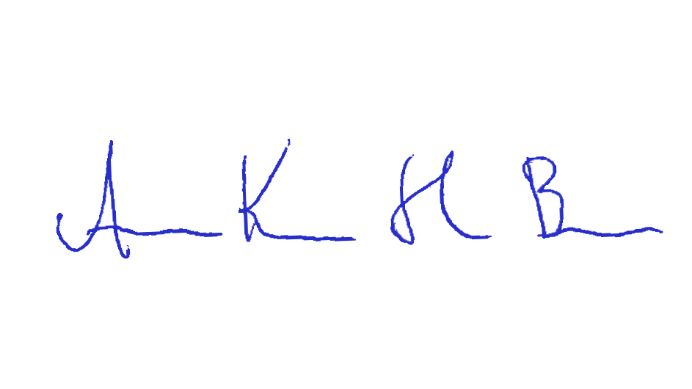 A K H B